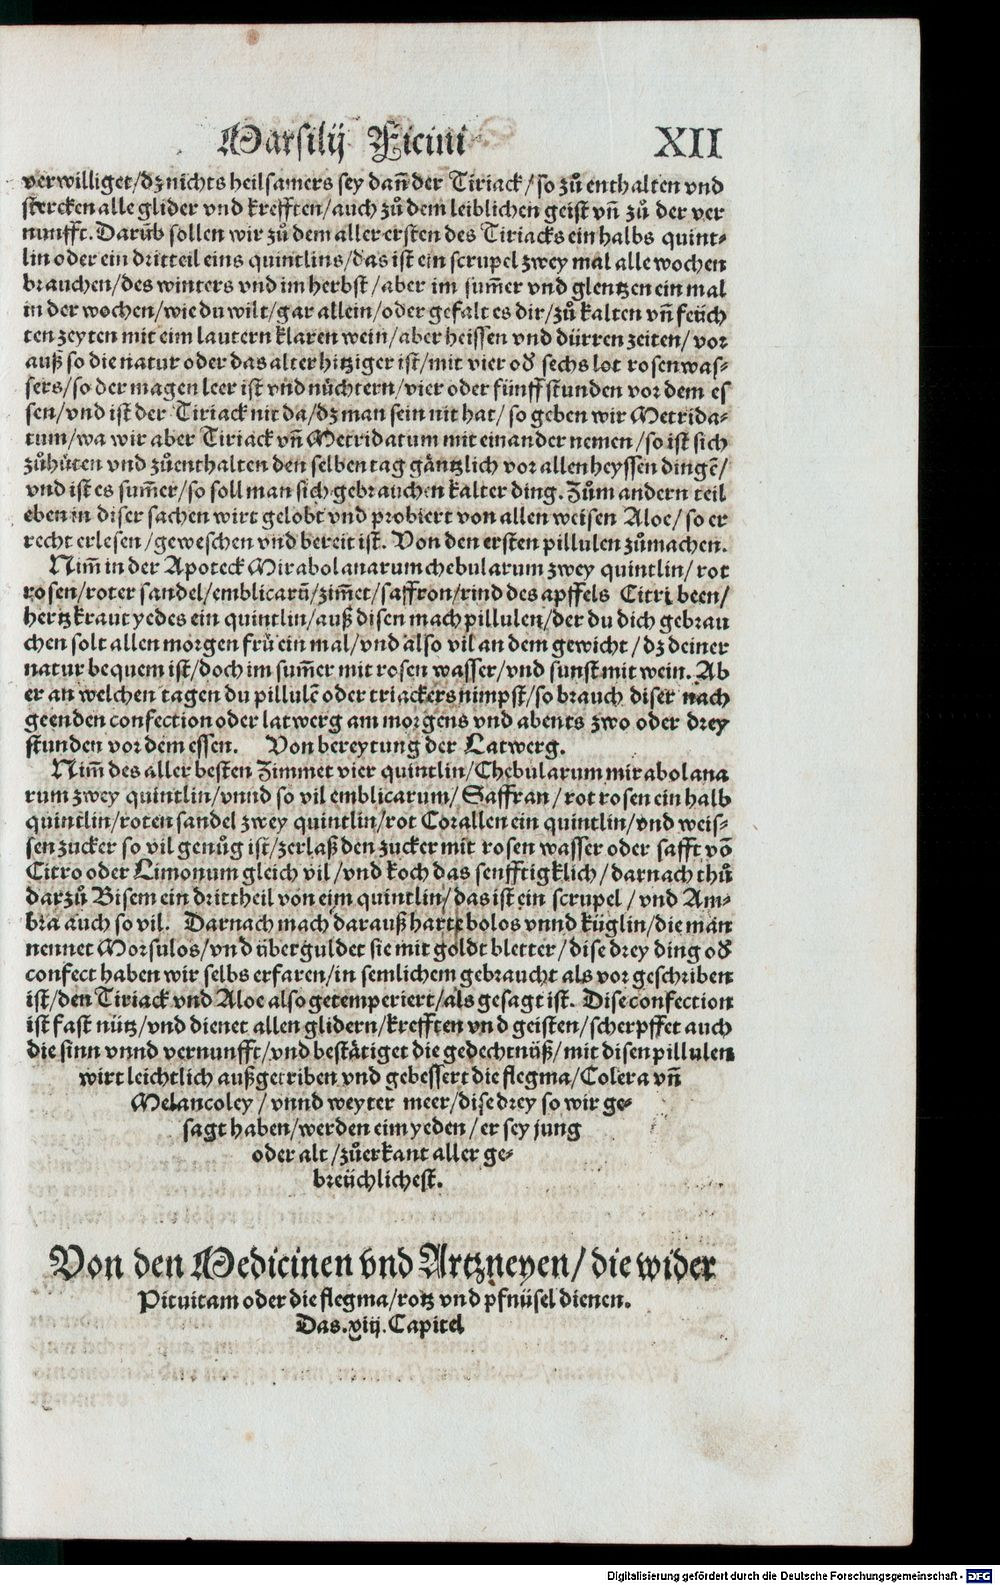 Marsilij Ficini XII
verwilliget/dz nichts heilsamers sey dañ der Tiriack/so zů enthalten vnd
stercken alle glider vnd krefften/auch zů dem leiblichen geist vñ zů der ver
nunfft. Darũb sollen wir zů dem aller ersten des Tiriacks ein halbs quint⸗
lin oder ein dritteil eins quintlins/das ist ein scrupel zwey mal alle wochen
brauchen/des winters vnd im herbst/aber im sum̃er vnd glentzen ein mal
in der wochen/wie du wilt/gar allein/oder gefalt es dir/zů kalten vñ feüch
ten zeyten mit eim lautern klaren wein/aber heissen vnd dürren zeiten/vor
auß so die natur oder das alter hitziger ist/mit vier oď sechs lot rosenwas⸗
sers/so der magen leer ist vnd nüchtern/vier oder fünff stunden vor dem es
sen/vnd ist der Tiriack nit da/dz man sein nit hat/so geben wir Metrida⸗
tum/wa wir aber Tiriack vñ Metridatum mit einander nemen/so ist sich
zůhüten vnd zůenthalten den selben tag gäntzlich vor allen heyssen dingẽ/
vnd ist es sum̃er/so soll man sich gebrauchen kalter ding. Zům andern teil
eben in diser sachen wirt gelobt vnd probiert von allen weisen Aloe/so er
recht erlesen/geweschen vnd bereit ist. Von den ersten pillulen zůmachen.
Nim̃ in der Apoteck Mirabolanarum chebularum zwey quintlin/rot
rosen/roter sandel/emblicarũ/zim̃et/saffron/rind des apffels Citri been/
hertzkraut yedes ein quintlin/auß disen mach pillulen/der du dich gebrau
chen solt allen morgen frü ein mal/vnd also vil an dem gewicht/dz deiner
natur bequem ist/doch im sum̃er mit rosen wasser/vnd sunst mit wein. Ab
er an welchen tagen du pillulẽ oder triackers nimpst/so brauch diser nach
geenden confection oder latwerg am morgens vnd abents zwo oder drey
stunden vor dem essen. Von bereytung der Latwerg.
Nim̃ des aller besten Zimmet vier quintlin/Chebularum mirabolana
rum zwey quintlin/vnnd so vil emblicarum/Saffran/rot rosen ein halb
quintlin/roten sandel zwey quintlin/rot Corallen ein quintlin/vnd weis⸗
sen zucker so vil genůg ist/zerlaß den zucker mit rosen wasser oder safft võ
Citro oder Limonum gleich vil/vnd koch das senfftigklich/darnach thů
darzů Bisem ein drittheil von eim quintlin/das ist ein scrupel/vnd Am⸗
bra auch so vil. Darnach mach darauß harte bolos vnnd küglin/die man
nennet Morsulos/vnd überguldet sie mit goldt bletter/dise drey ding oď
confect haben wir selbs erfaren/in semlichem gebraucht als vor geschriben
ist/den Tiriack vnd Aloe also getemperiert/als gesagt ist. Dise confection
ist fast nütz/vnd dienet allen glidern/krefften vnd geisten/scherpffet auch
die sinn vnnd vernunfft/vnd bestätiget die gedechtnüß/mit disen pillulen
wirt leichtlich außgetriben vnd gebessert die flegma/Colera vñ
Melancoley/vnnd weyter meer/dise drey so wir ge⸗
sagt haben/werden eim yeden/er sey jung
oder alt/zůerkant aller ge⸗
breüchlichest.
Von den Medicinen vnd Artzneyen/die wider
Pituitam oder die flegma/rotz vnd pfnüsel dienen.
Das.xiij.Capitel
Digitalisierung gefördert durch die Deutsche Forschungsgemeinschaft - DFG